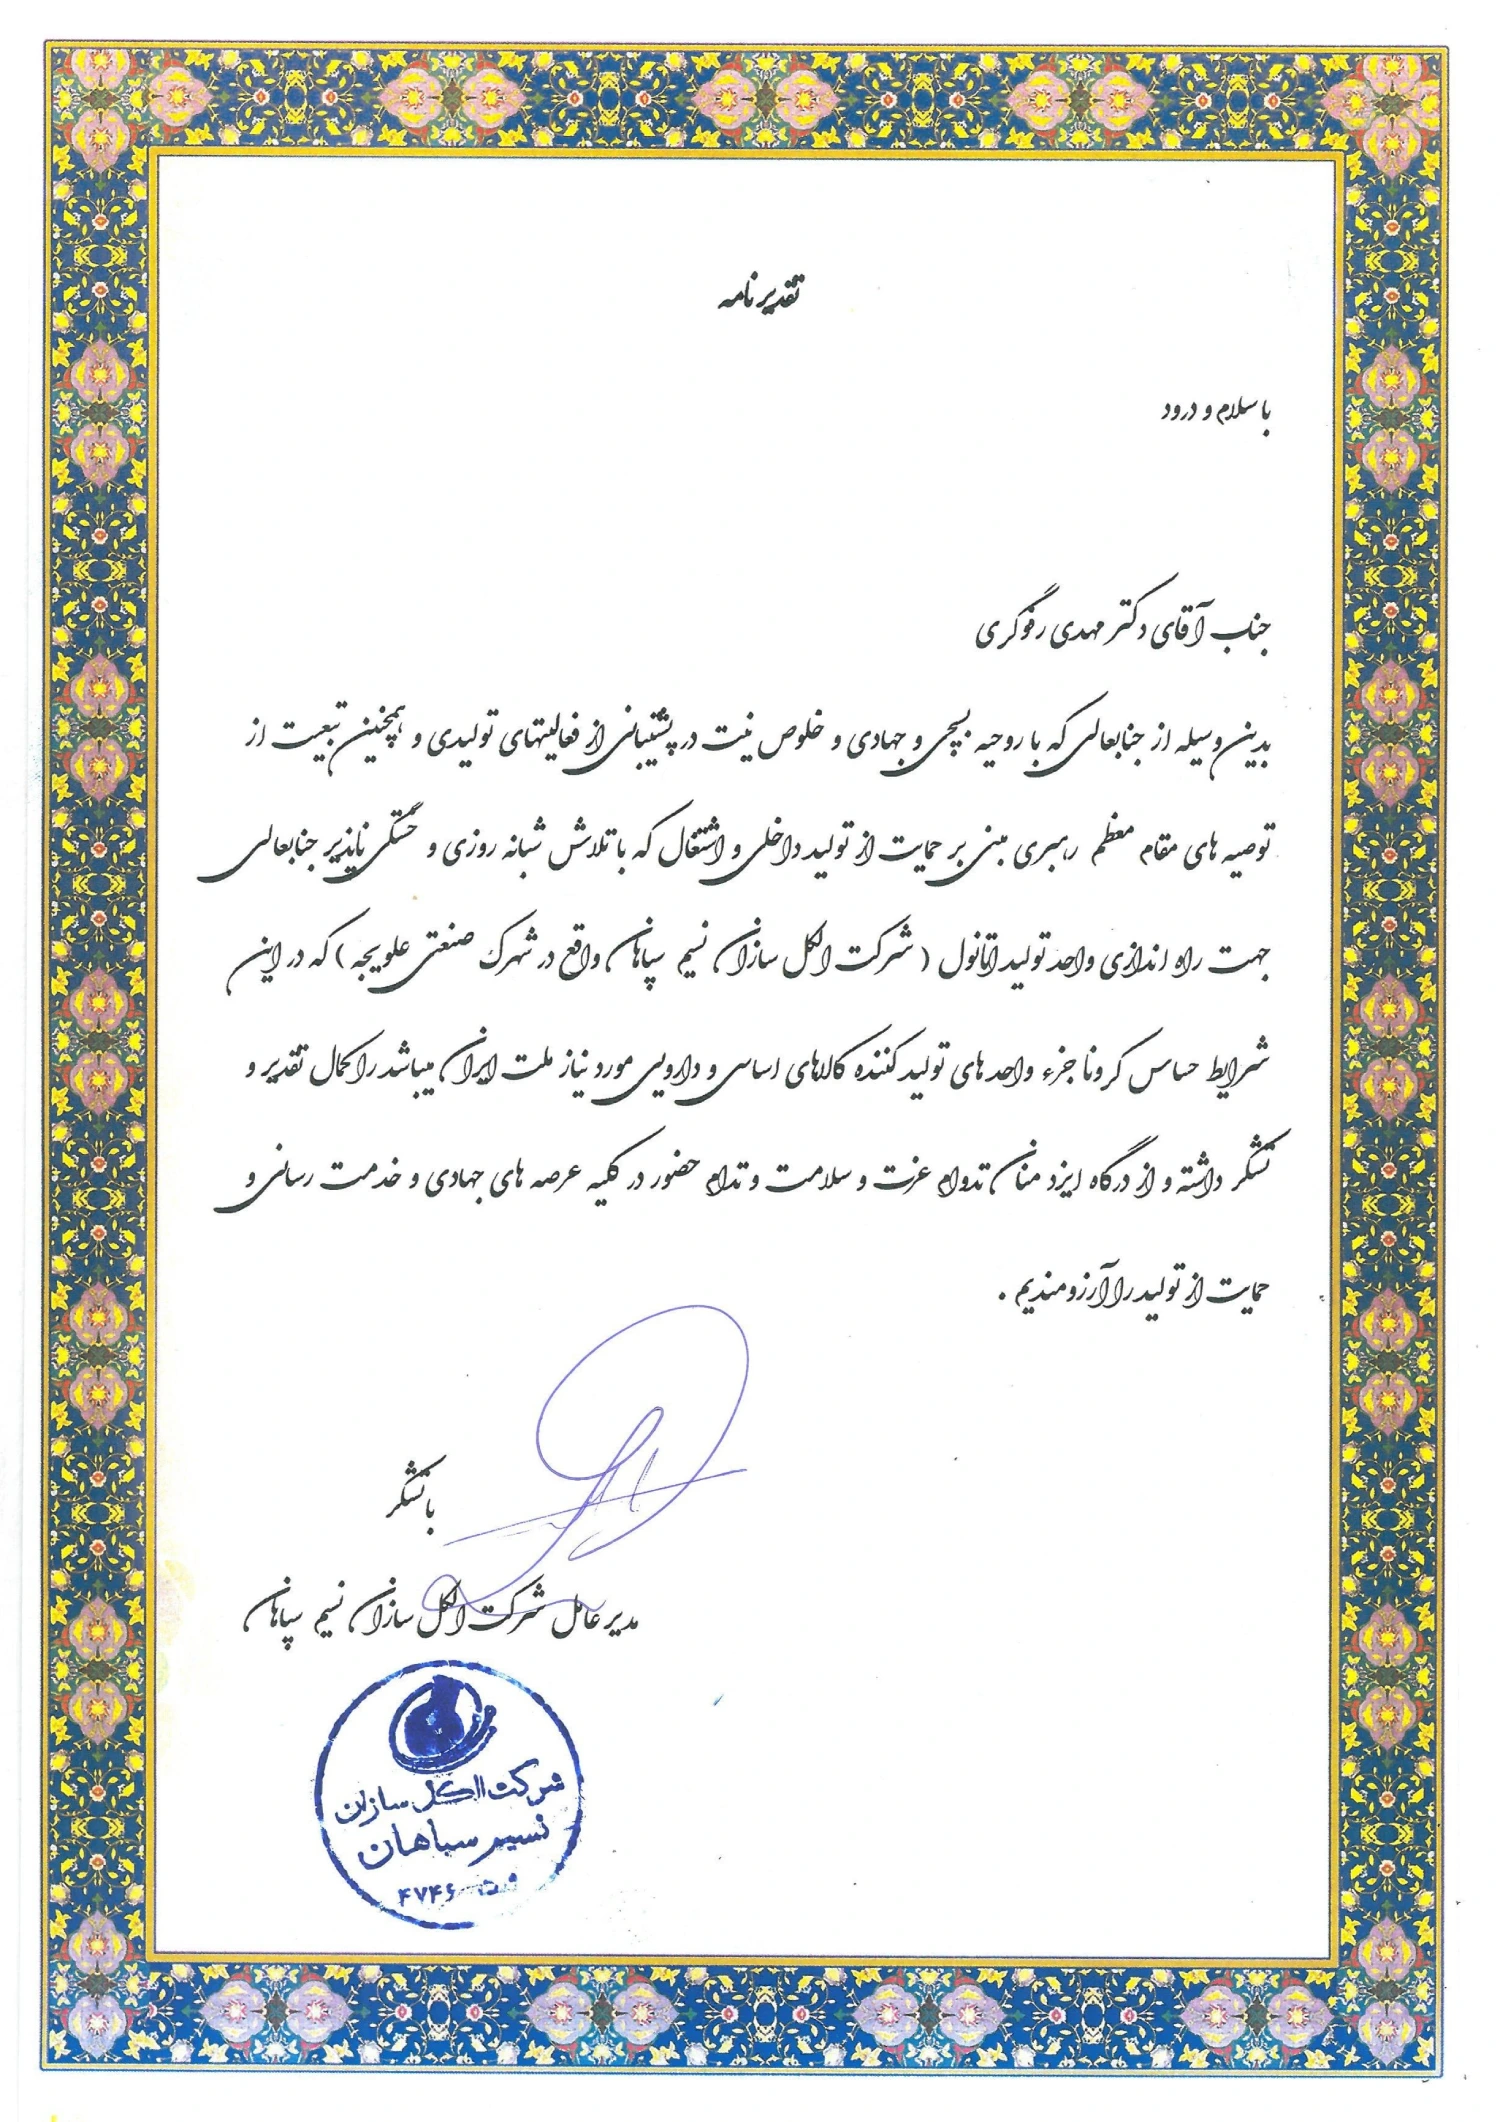 تقدیر نامه
با سلام و درود
جناب آقای دکتر مهدی رفوگری
بدین وسیله از جنابعالی که با روحیه بسیجی و جهادی و خلوص نیت در پشتیبانی از فعالیتهای تولیدی و همچنین تبعیت از
توصیه های مقام معظم رهبری مبنی بر حمایت از تولید داخلی و اشتغال که با تلاش شبانه روزی و خستگی ناپذیر جنابعالی
جهت راه اندازی واحد تولید اتانول ( شرکت الکل سازان نسیم سپاهان واقع در شهرک صنعتی علویجه ) که در این
شرایط حساس کرونا جزء واحد های تولید کننده کالاهای اساسی و دارویی مورد نیاز ملت ایران میباشد را کمال تقدیر و
تشکر داشته و از درگاه ایزد منان تدوام عزت و سلامت و تدام حضور در کلیه عرصه های جهادی و خدمت رسانی و
حمایت از تولید را آرزومندیم .
با تشکر
مدیر عامل شرکت الکل سازان نسیم سپاهان
شرکت الکل سازان
نسیم سپاهان
ثبت ۴۷۴۶